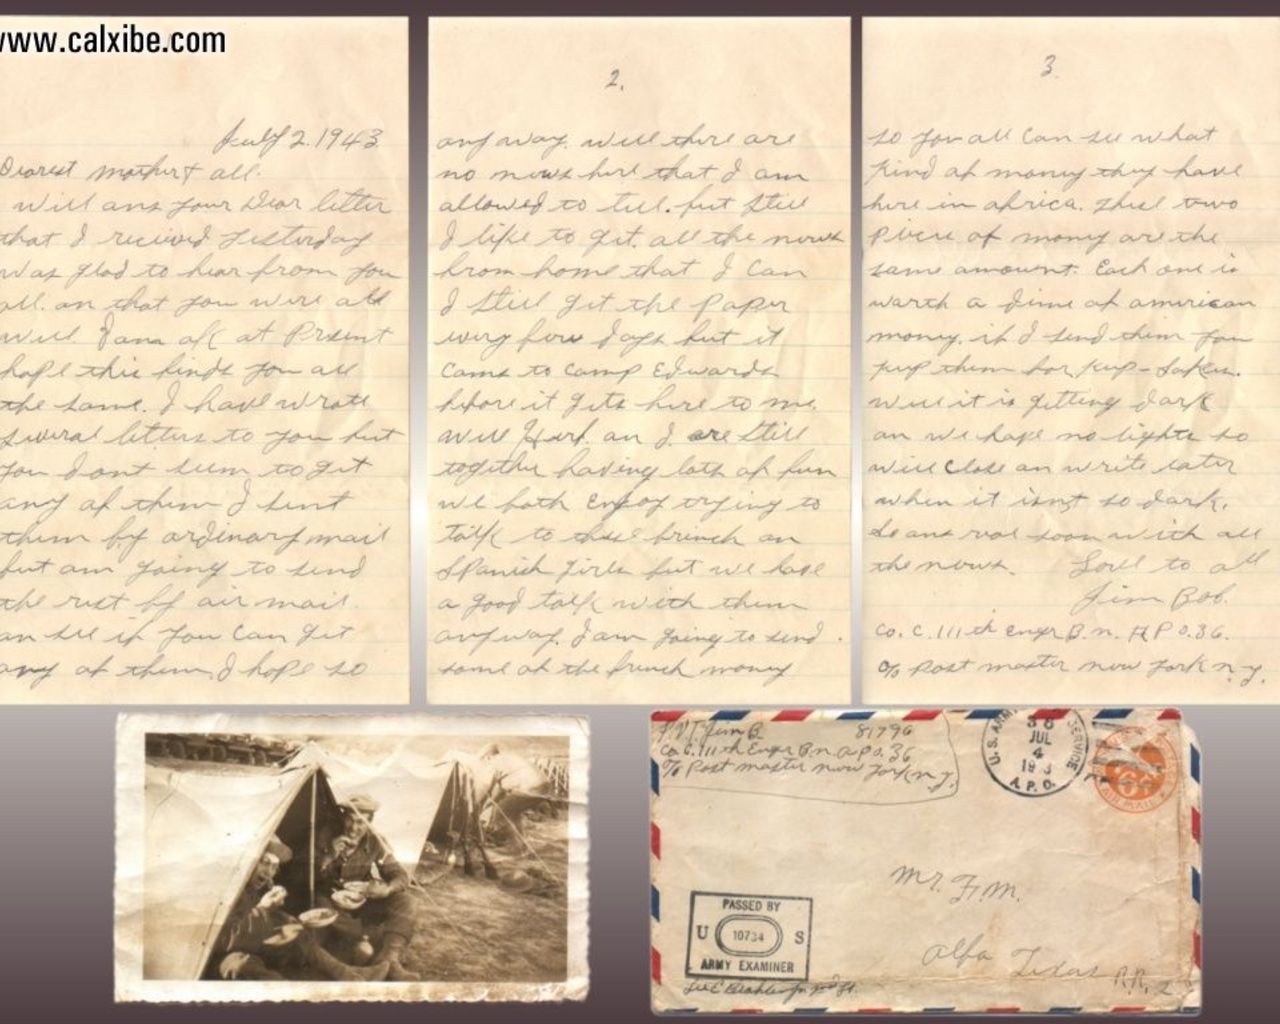 www.calxibe.com
July 2. 1943
Dearest mother & all.
will ans your dear letter
that I recieved yesterday
was glad to hear from you
all. an that you were all
well. I am ok at Present
hope this finds you all
the same. I have wrote
several letters to you but
you dont seem to get
any of them I sent
them by ordinary mail
but am going to send
the rest by air mail.
an see if you can get
any of them I hope so
2.
any way. well there are
no news here that I am
allowed to tell. but still
I like to get all the news
from home that I can
I still get the paper
every few days but it
came to Camp Edwards
before it gets here to me.
well an I are still
together having lots of fun
we both enjoy trying to
talk to these french an
Spanish girls but we have
a good talk with them
anyway. I am going to send
some of the french money
3.
so you all can see what
kind of money they have
here in africa. these two
piece of money are the
same amount. Each one is
worth a dime of american
money. if I send them you
keep them for keep-sakes.
well it is getting dark
an we have no lights so
will close an write later
when it isnt so dark.
so ans real soon with all
the news. Love to all
Jim Bob.
Co. C. 111th Engr B.n. A P O. 36.
c/o Post master new york n.y.
PVT. Jim B. 81796
Co C. 111th Engr B.n. A.P.O. 36
c/o Post master new York n.y.
U.S. ARMY SERVICE
JUL
4
A.P.O.
6¢
AIR MAIL
Mr. F.M.
Alba Texas
R.R. 2
PASSED BY
U 10734 S
ARMY EXAMINER